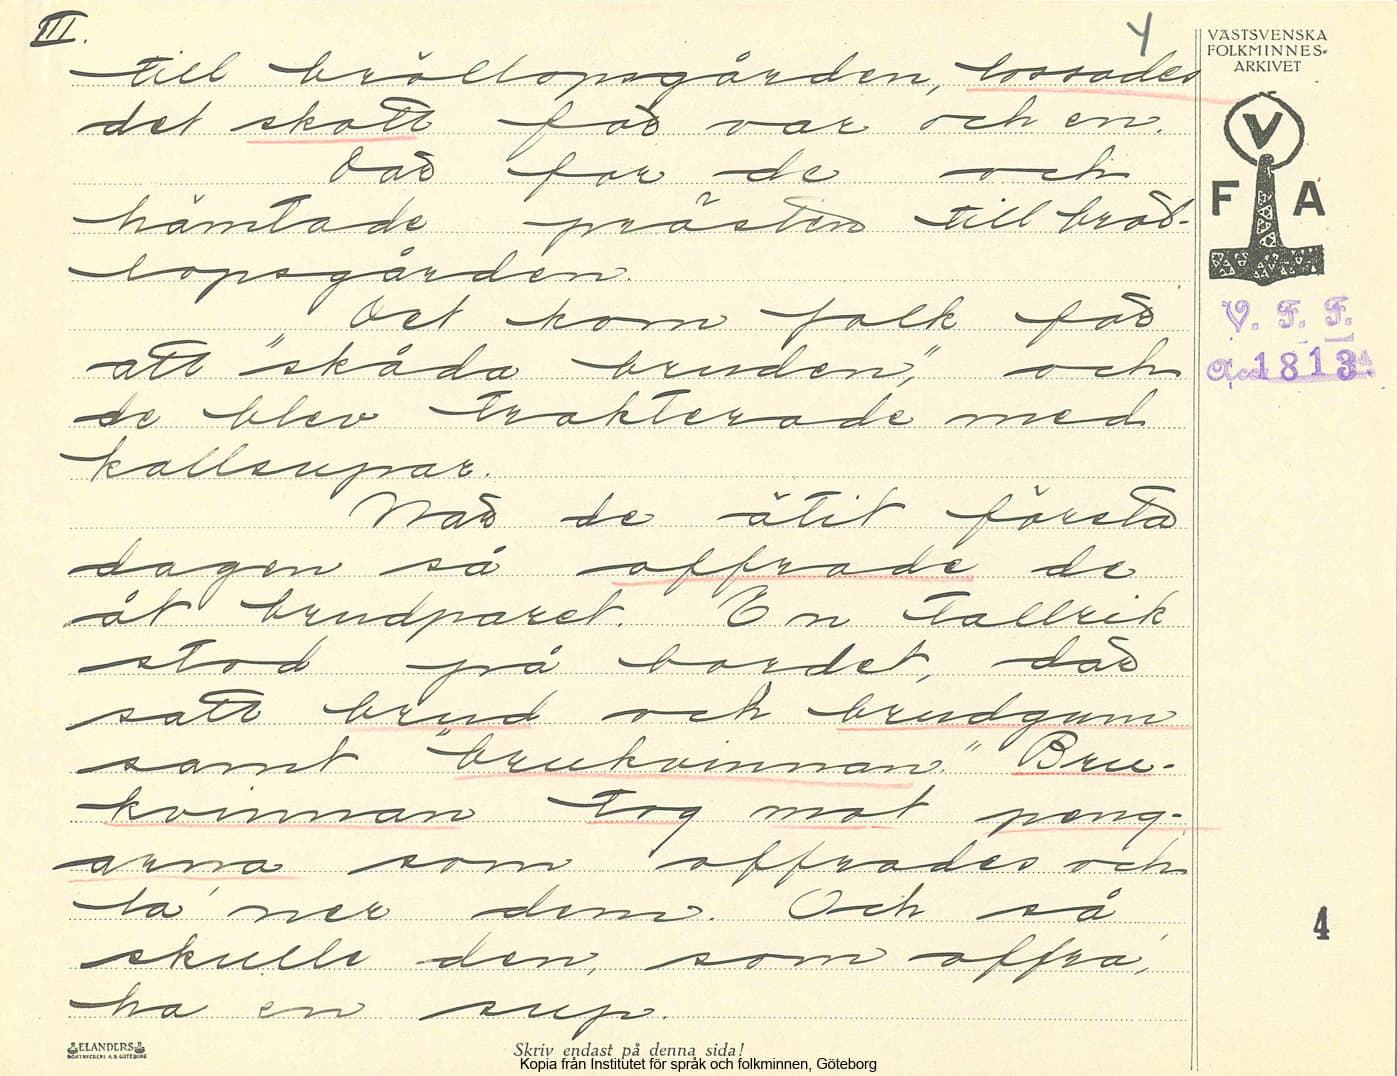 III.
4
VÄSTSVENSKA
FOLKMINNES-
ARKIVET
till bröllopsgården, lossades
det skott för var och en.
Där for de och
hämtade prästen till bröl-
lopsgården.
Det kom folk för
att "skåda bruden", och
de blev trakterade med
kallsupar.
När de ätit första
dagen så offrade de
åt brudparet. En tallrik
stod på bordet, där
satt brud och brudgum
samt "brukvinnan." Bru-
kvinnan tog mot peng-
arna som offrades och
la' ner dem. Och så
skulle den, som offra',
ha en sup.
V
F A
V. F. F.
Acc 1813
4
ELANDERS
BOKTRYCKERI A.B. GÖTEBORG
Skriv endast på denna sida!
Kopia från Institutet för språk och folkminnen, Göteborg